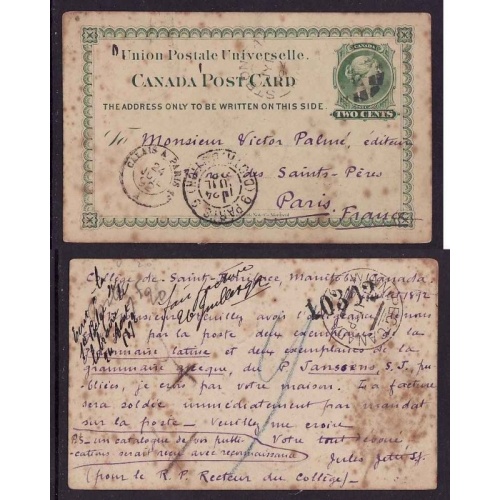 Union Postale Universelle.
CANADA POST CARD
THE ADDRESS ONLY TO BE WRITTEN ON THIS SIDE.
CANADA
TWO CENTS
To Monsieur Victor Palmé, éditeur
des Saints-Pères
Paris
France
CALAIS A PARIS
24
PARIS
24
JUIL
Collège de Saint-Boniface, Manitoba, Canada
1892
Monsieur, veuillez avoir l'obligeance de nous
par la poste deux exemplaires de la
grammaire latine et deux exemplaires de la
grammaire grecque, du P. Janssens, S.J., pu
bliées, je crois par votre maison. La facture
sera soldée immédiatement par mandat
sur la poste — Veuillez me croire
Votre tout dévoué
PS — un catalogue de vos publi-
cations serait reçu avec reconnaissance
Jules Jetté SJ.
(pour le R. P. Recteur du Collège)
sans facture
CANADA